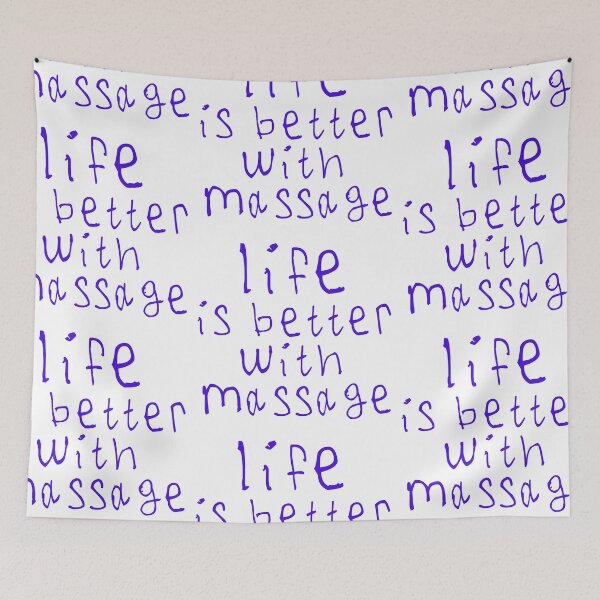 massage
life
better
with
massage
life
better
with
massage
life
is better
with
massage
life
is better
with
massage
life
is better
massag
life
is bette
with
massag
life
is bette
with
massag